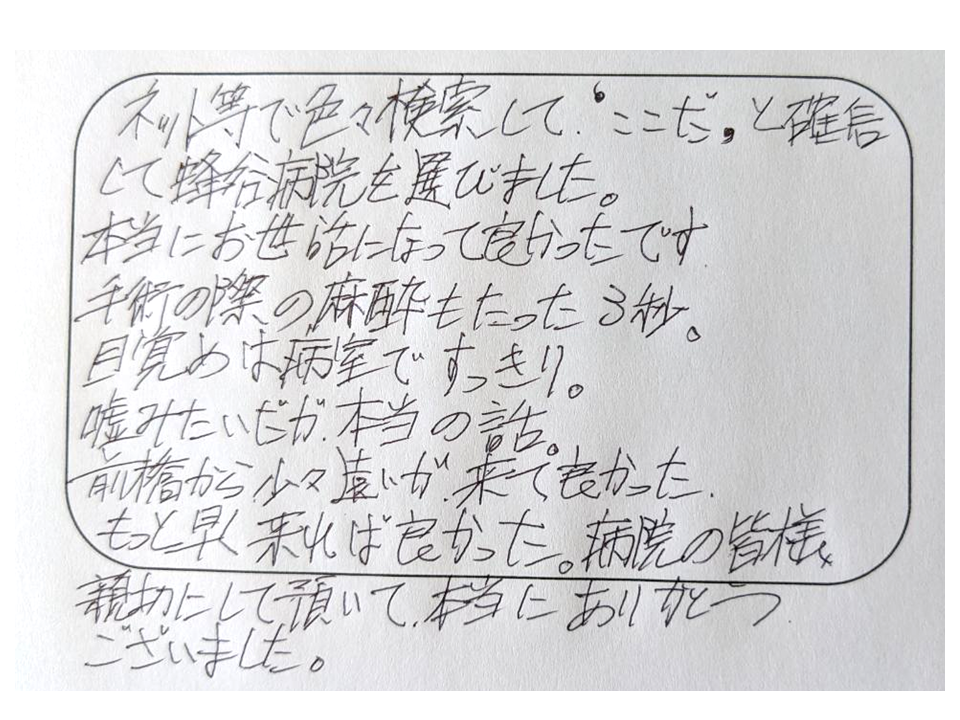 ネット等で色々検索して、‘ここだ，と確信
して蜂谷病院を選びました。
本当にお世話になって良かったです
手術の際の麻酔もたった3秒。
目覚めは病室ですっきり。
嘘みたいだが、本当の話。
前橋から、少々遠いが、来て良かった、
もっと早く来れば良かった。病院の皆様、
親切にして頂いて、本当にありがとう
ございました。